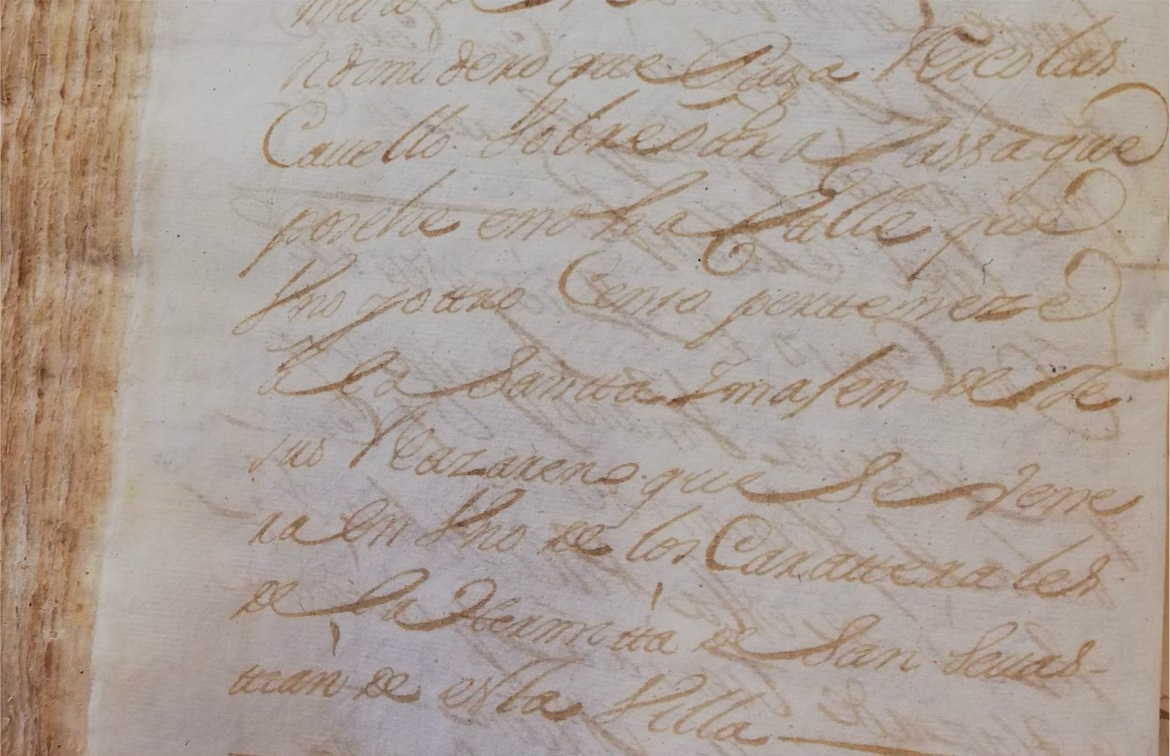 que Paga Nicolas
Cauello sobre otra Cassa que
posehe en otra Calle que
Vno y otro Censo pertteneze
a la Santta Imasen de Je
sus Nazareno que se Vene
ra en Vno de los Carattera les
de la Hermitta de San Seuas-
ttian de esta Villa